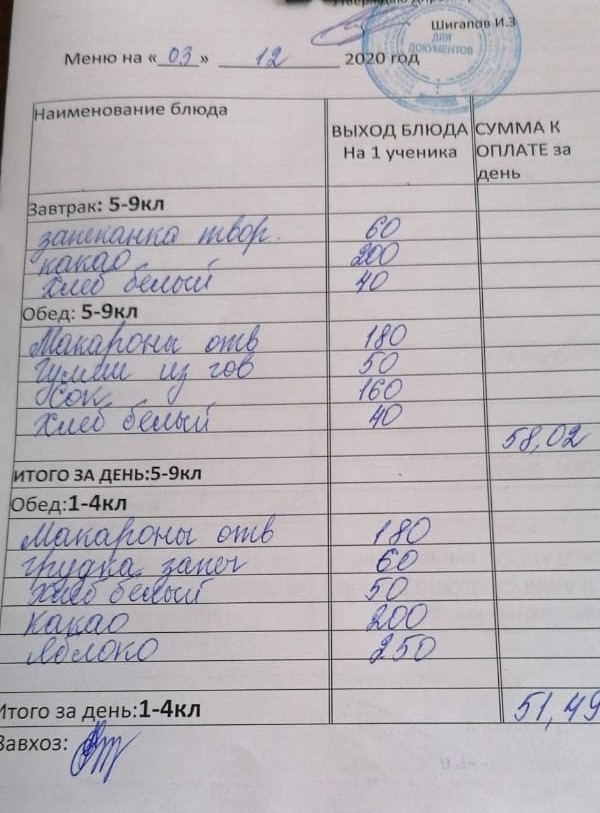 Утверждаю Директор
Шигапов И.З
ДЛЯ
ДОКУМЕНТОВ
Меню на «03» 12 2020 год
Наименование блюда
ВЫХОД БЛЮДА На 1 ученика
СУММА К ОПЛАТЕ за день
Завтрак: 5-9кл
запеканка твор. 60
какао 200
Хлеб белый 40
Обед: 5-9кл
Макароны отв 180
Гуляш из гов 50
Сок 160
Хлеб белый 40
58,02
ИТОГО ЗА ДЕНЬ:5-9кл
Обед:1-4кл
Макароны отв 180
грудка запеч 60
Хлеб белый 50
Какао 200
Яблоко 250
Итого за день:1-4кл 51,49
Завхоз: